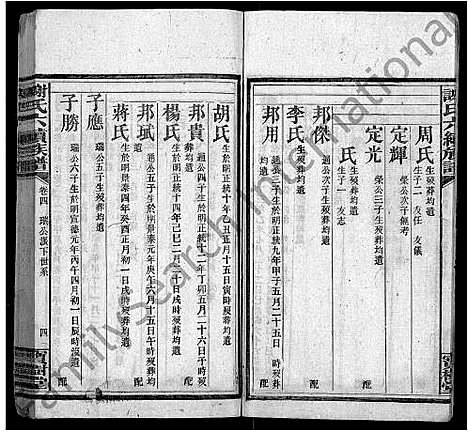 謝氏六續族譜
周氏 生歿葬均遺
生子二 友任 友儀
定輝 榮公次子無考
定光 榮公三子生歿葬均遺
氏 生歿葬均遺
生子一 友志
邦傑 通公四子生歿葬均遺 配
李氏 生歿葬均遺
邦用 通公 子生於明正統九年甲子五月二十五日 時歿葬均遺 配
寶樹堂
胡氏 生於明正統十年乙丑正月十五日寅時歿葬均遺
邦貴 通公 子生於明正統十二年丁卯五月二十六日子時歿葬均遺 配
楊氏 生於明正統十四年己巳二月二十日戌時歿葬均遺
邦珷 通公五子生於明景泰元年庚午六月十五日午時歿葬均遺 配
蔣氏 生於明景泰四年癸酉正月初一日戌時歿葬均遺
子應 瑞公五子生歿葬均遺 配
子勝 瑞公六子生於明宣德元年丙午四月初一日辰時歿葬均遺 配
謝氏六續族譜
卷四 瑞公漢下世系
四
寶樹堂
FamilySearch International